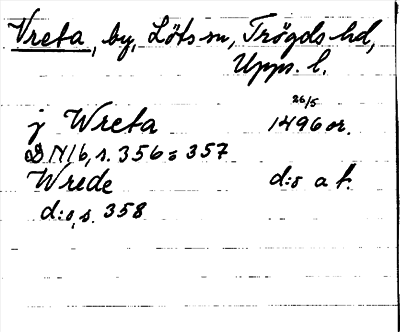 Vreta, by, Löts sn, Trögds hd,
Upps. l.
26/5
j Wreta 1496 or.
DN 16, s. 356 = 357
Wrede d:o a f.
d:o, s. 358